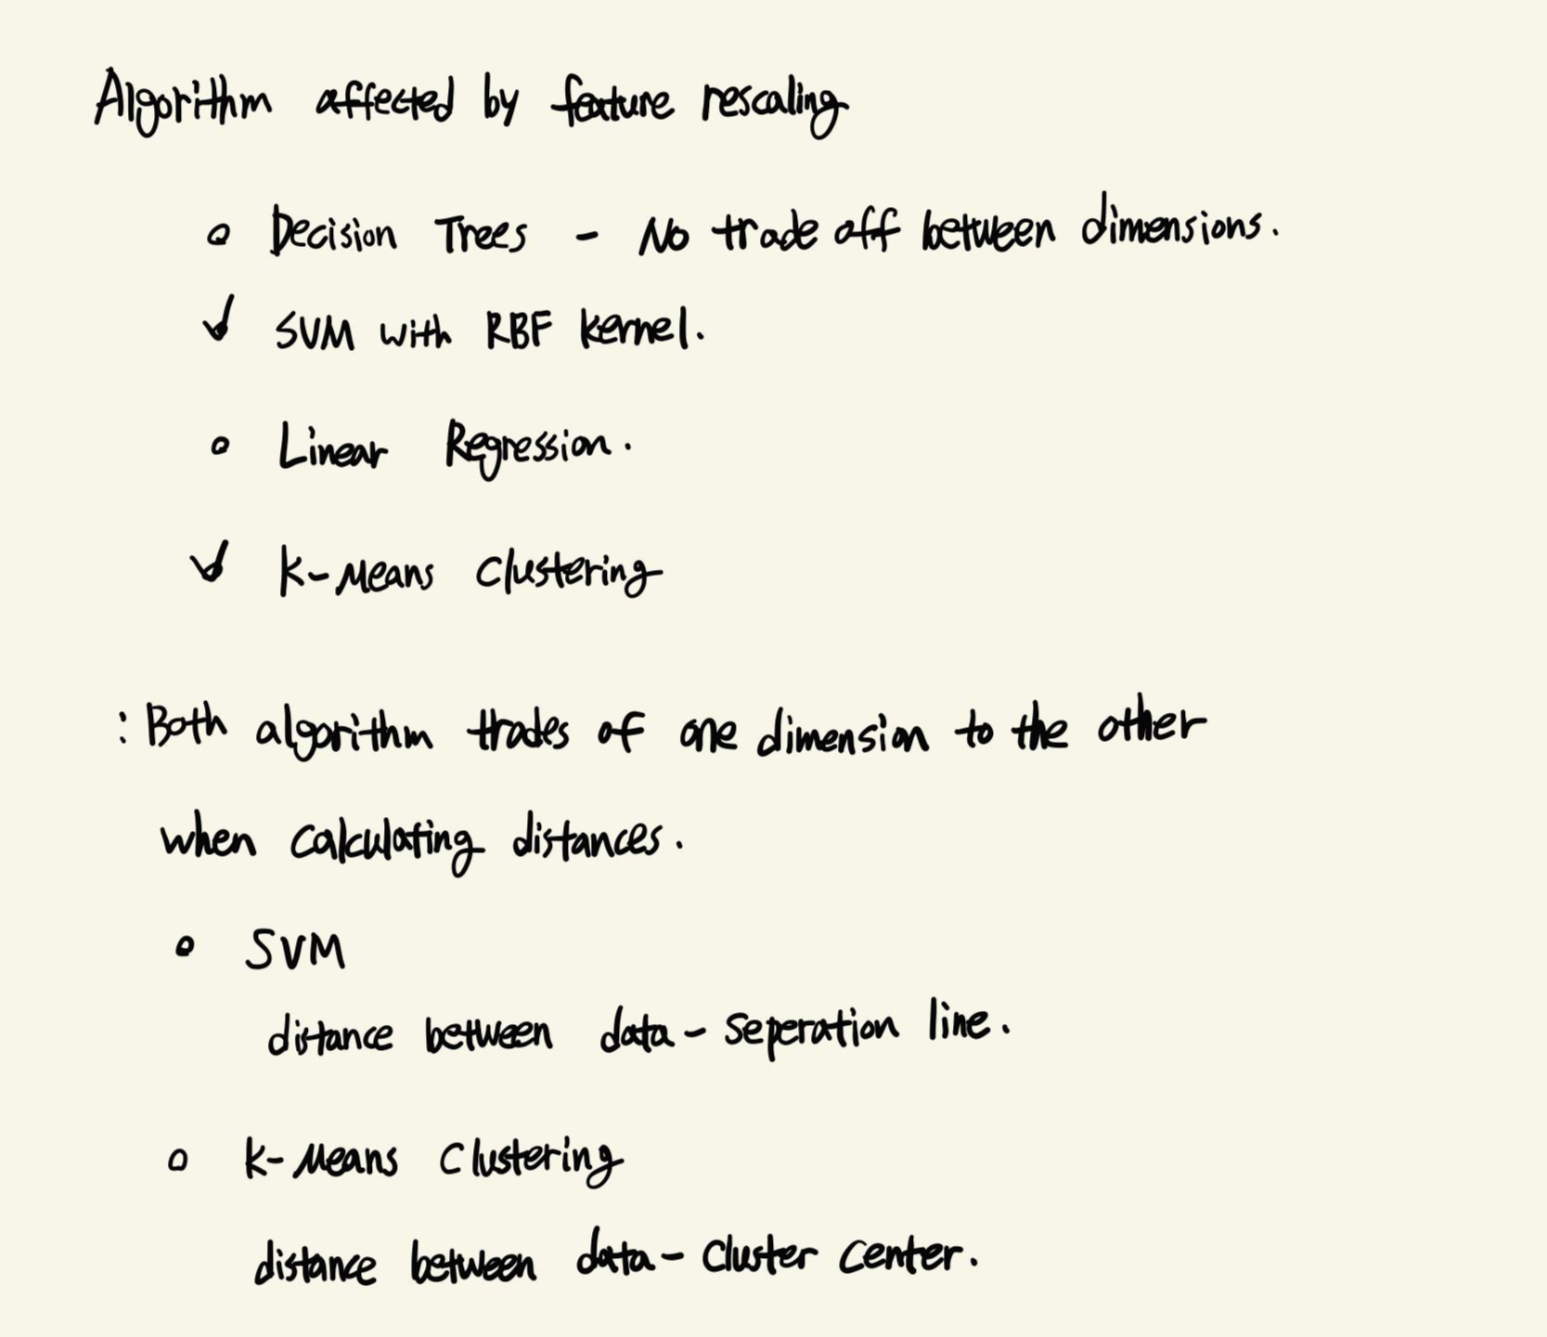 Algorithm affected by feature rescaling
o Decision Trees - No trade off between dimensions.
✓ SVM with RBF kernel.
o Linear Regression.
✓ K-Means Clustering
: Both algorithm trades of one dimension to the other
when calculating distances.
o SVM
distance between data - seperation line.
o K-Means Clustering
distance between data - cluster center.